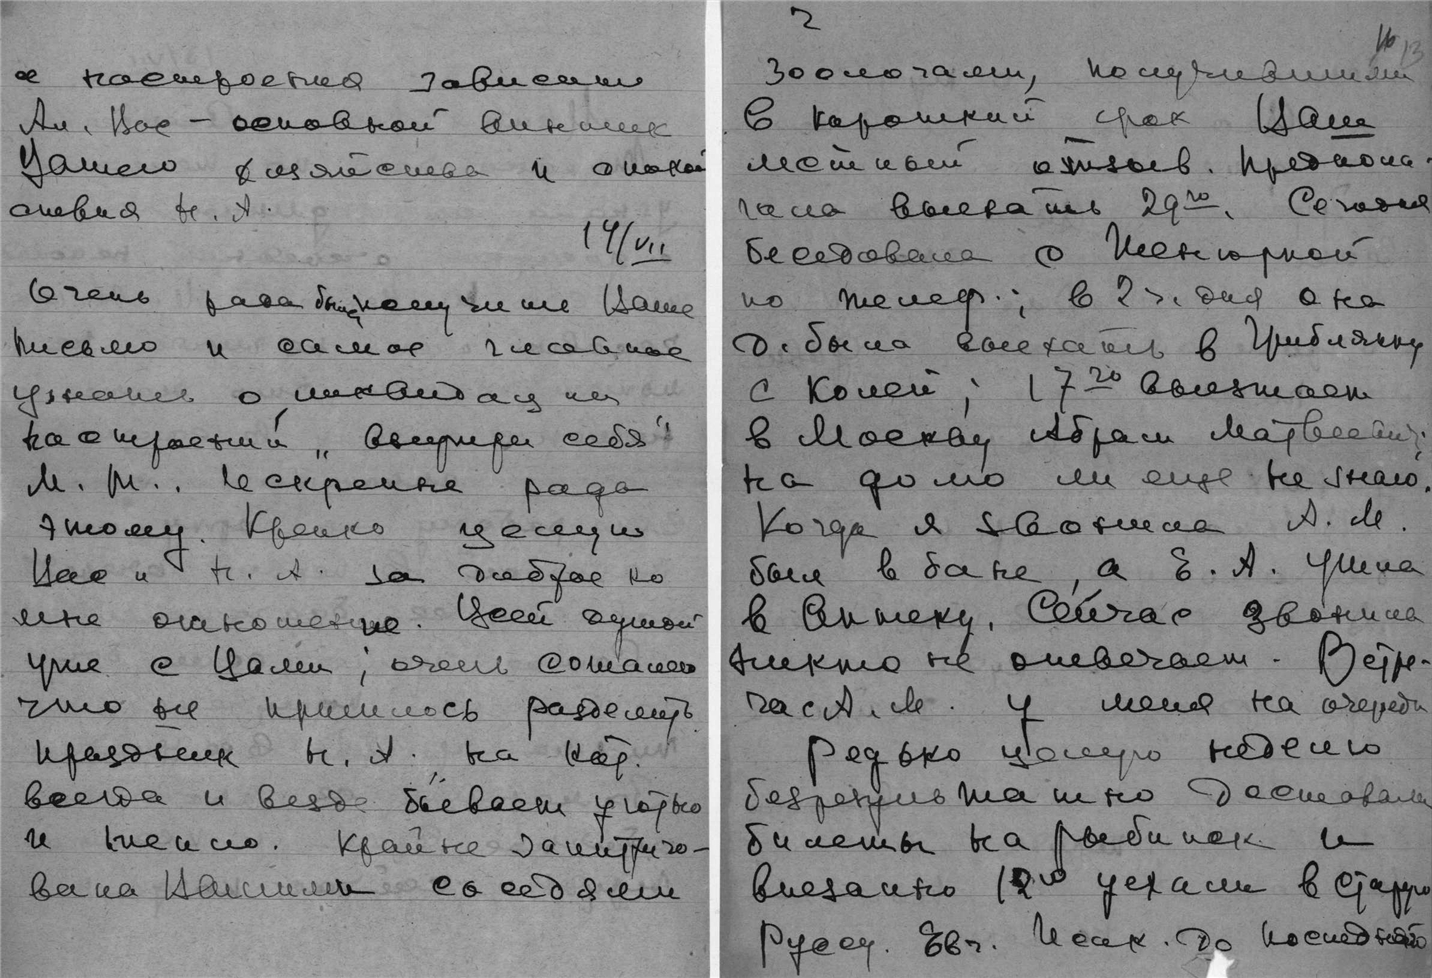 и настроения зависит
Ал. Вас – основной винтик
Вашего хозяйства и спокой
ствия Н. А.
14/VII
Очень рада была получить Ваше
письмо и самое главное
узнать о ликвидации
настроений „внутри себя"
М. М.. Искренне рада
этому. Крепко целую
Вас и Н. А. за доброе ко
мне отношение. Всей душой
уже с Вами; очень сожалею
что не пришлось разделить
праздник Н. А., на кот.
всегда и везде бывает уютно
и тепло. Крайне заинтриго-
вана Вашими соседями
2
13
Зоологами, получившими
в короткий срок Ваш
лестный отзыв. Предпола-
гала выехать 29го. Сегодня
беседовала с
по телеф.; в 2 ч. дня она
д. была выехать в
с Колей; 17го выезжает
в Москву Абрам Матвеевич;
на долго ли еще не знаю.
Когда я звонила А. М.
был в бане, а Е. А. ушла
в Аптеку. Сейчас звонила
никто не отвечает. Встре-
ча с А. М. у меня на очереди
Редько целую неделю
безрезультатно доставали
билеты на Рыбинск и
внезапно 12го уехали в Старую
Руссу. Евг. Исак. до последнего